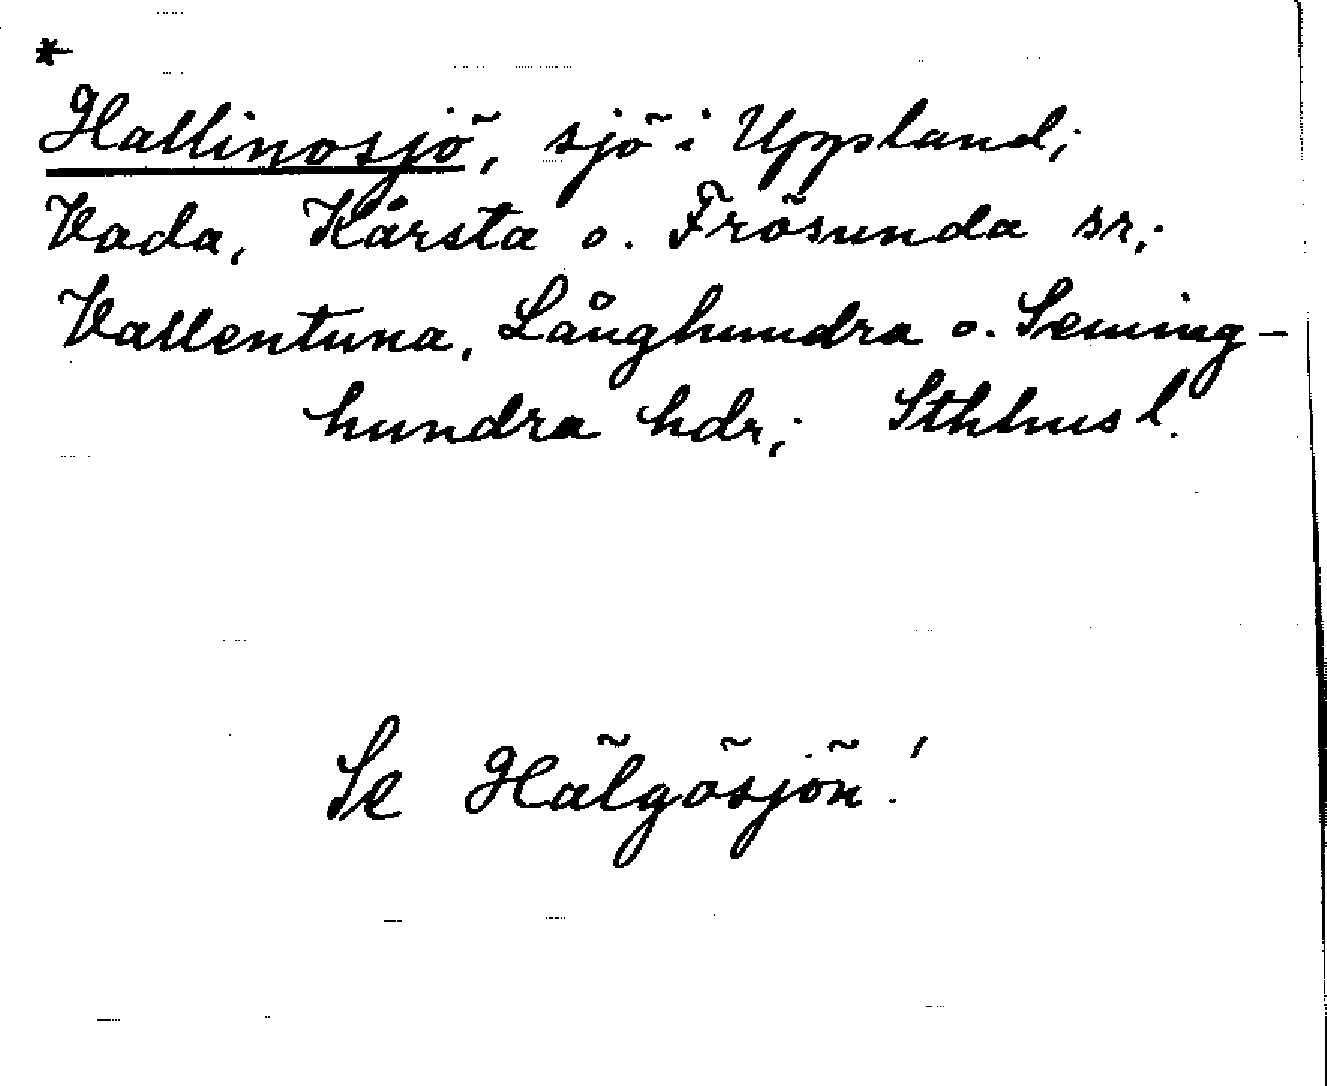 *
Hallinosjö, sjö i Uppland;
Vada, Kårsta o. Frösunda sr,;
Vallentuna, Långhundra o. Seming-
hundra hdr,; Sthhus l.
Se Hälgösjön!